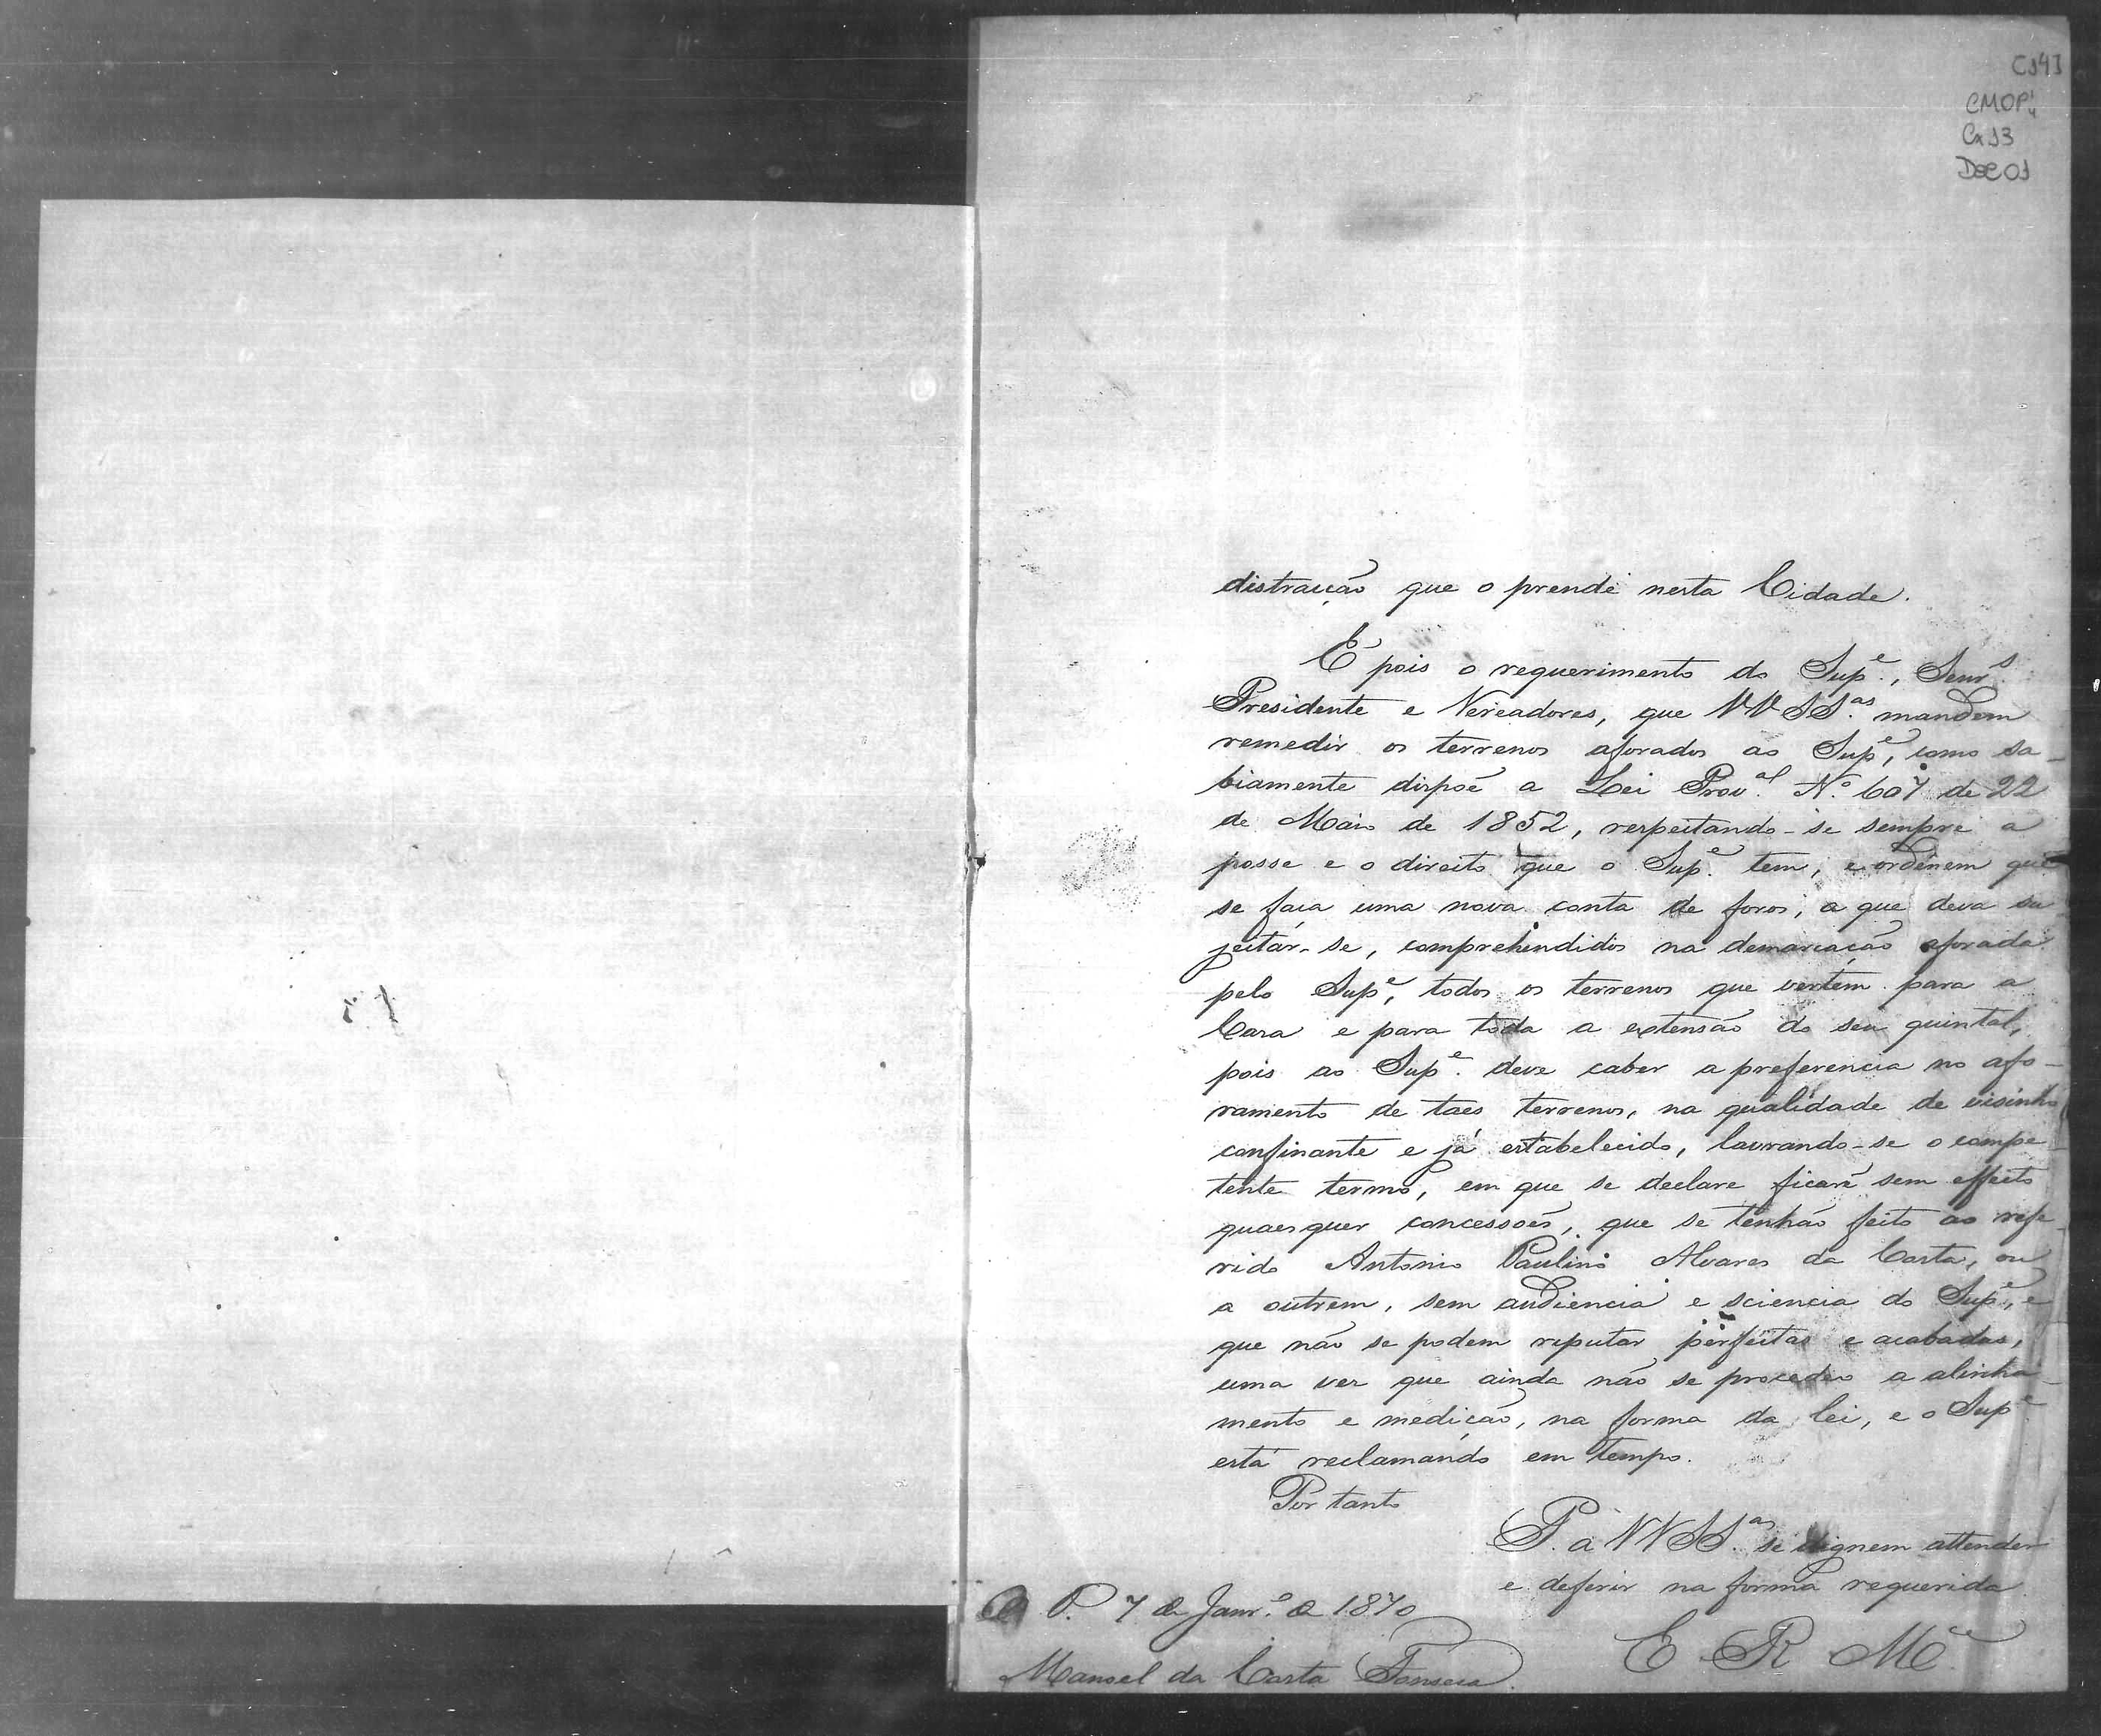 CMOP
Cx 13
Doc 01
distracção que o prende nesta Cidade.
É pois o requerimento do Sup.e, Senr.s
Presidente e Vereadores, que VV SS.as mandem
remedir os terrenos aforados ao Sup.e, como sa-
biamente dispõe a Lei Prov.al N.º 607 de 22
de Maio de 1852, respeitando-se sempre a
posse e o direito que o Sup.e tem, e ordenem que
se faça uma nova conta de foros, a que deva su-
jeitar-se, comprehendidos na demarcação aforada
pelo Sup.e, todos os terrenos que vertem para a
Casa e para toda a extensão do seu quintal,
pois ao Sup.e deve caber a preferencia no afo-
ramento de taes terrenos, na qualidade de visinho
confinante e já estabelecido, lavrando-se o compe-
tente termo, em que se declare ficarẽ sem effeito
quaesquer concessoẽs, que se tenhão feito ao refe-
rido Antonio Paulino Alvares da Costa, ou
a outrem, sem audiencia e sciencia do Sup.e, e
que não se podem reputar perfeitas e acabadas,
uma vez que ainda não se procedeo a alinha-
mento e medição, na forma da lei, e o Sup.e
está reclamando em tempo.
Por tanto
P. a VV SS.as se dignem attender
e deferir na forma requerida
O. P. 7 de Janr.º de 1870
E R M.ce
Manoel da Costa Fonseca.